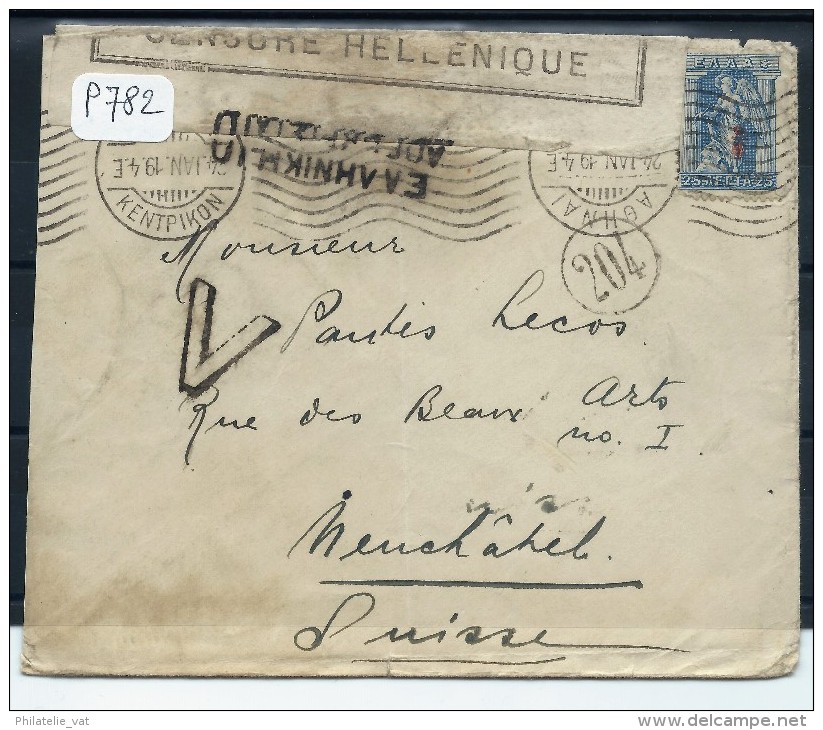 CENSURE HELLENIQUE
P782
ΕΛΛΑΣ
25 ΛΕΠΤΑ 25
ΕΛΛΗΝΙΚΗ
24 JAN. 19. 4.E
ΚΕΝΤΡΙΚΟΝ
24 JAN. 19. 4.E
ΑΘΗΝΑΙ
204
Monsieur
Pandés Lecos
Rue des Beaux Arts
no. I
Neuchâtel.
Suisse
Philatelie_vat
delcampe.net